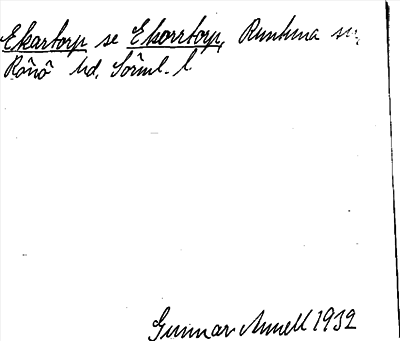 Ekartorp se Ekorrtorp, Runtuna sn,
Rönö hd, Sörml. l.
Gunnar Annell 1932